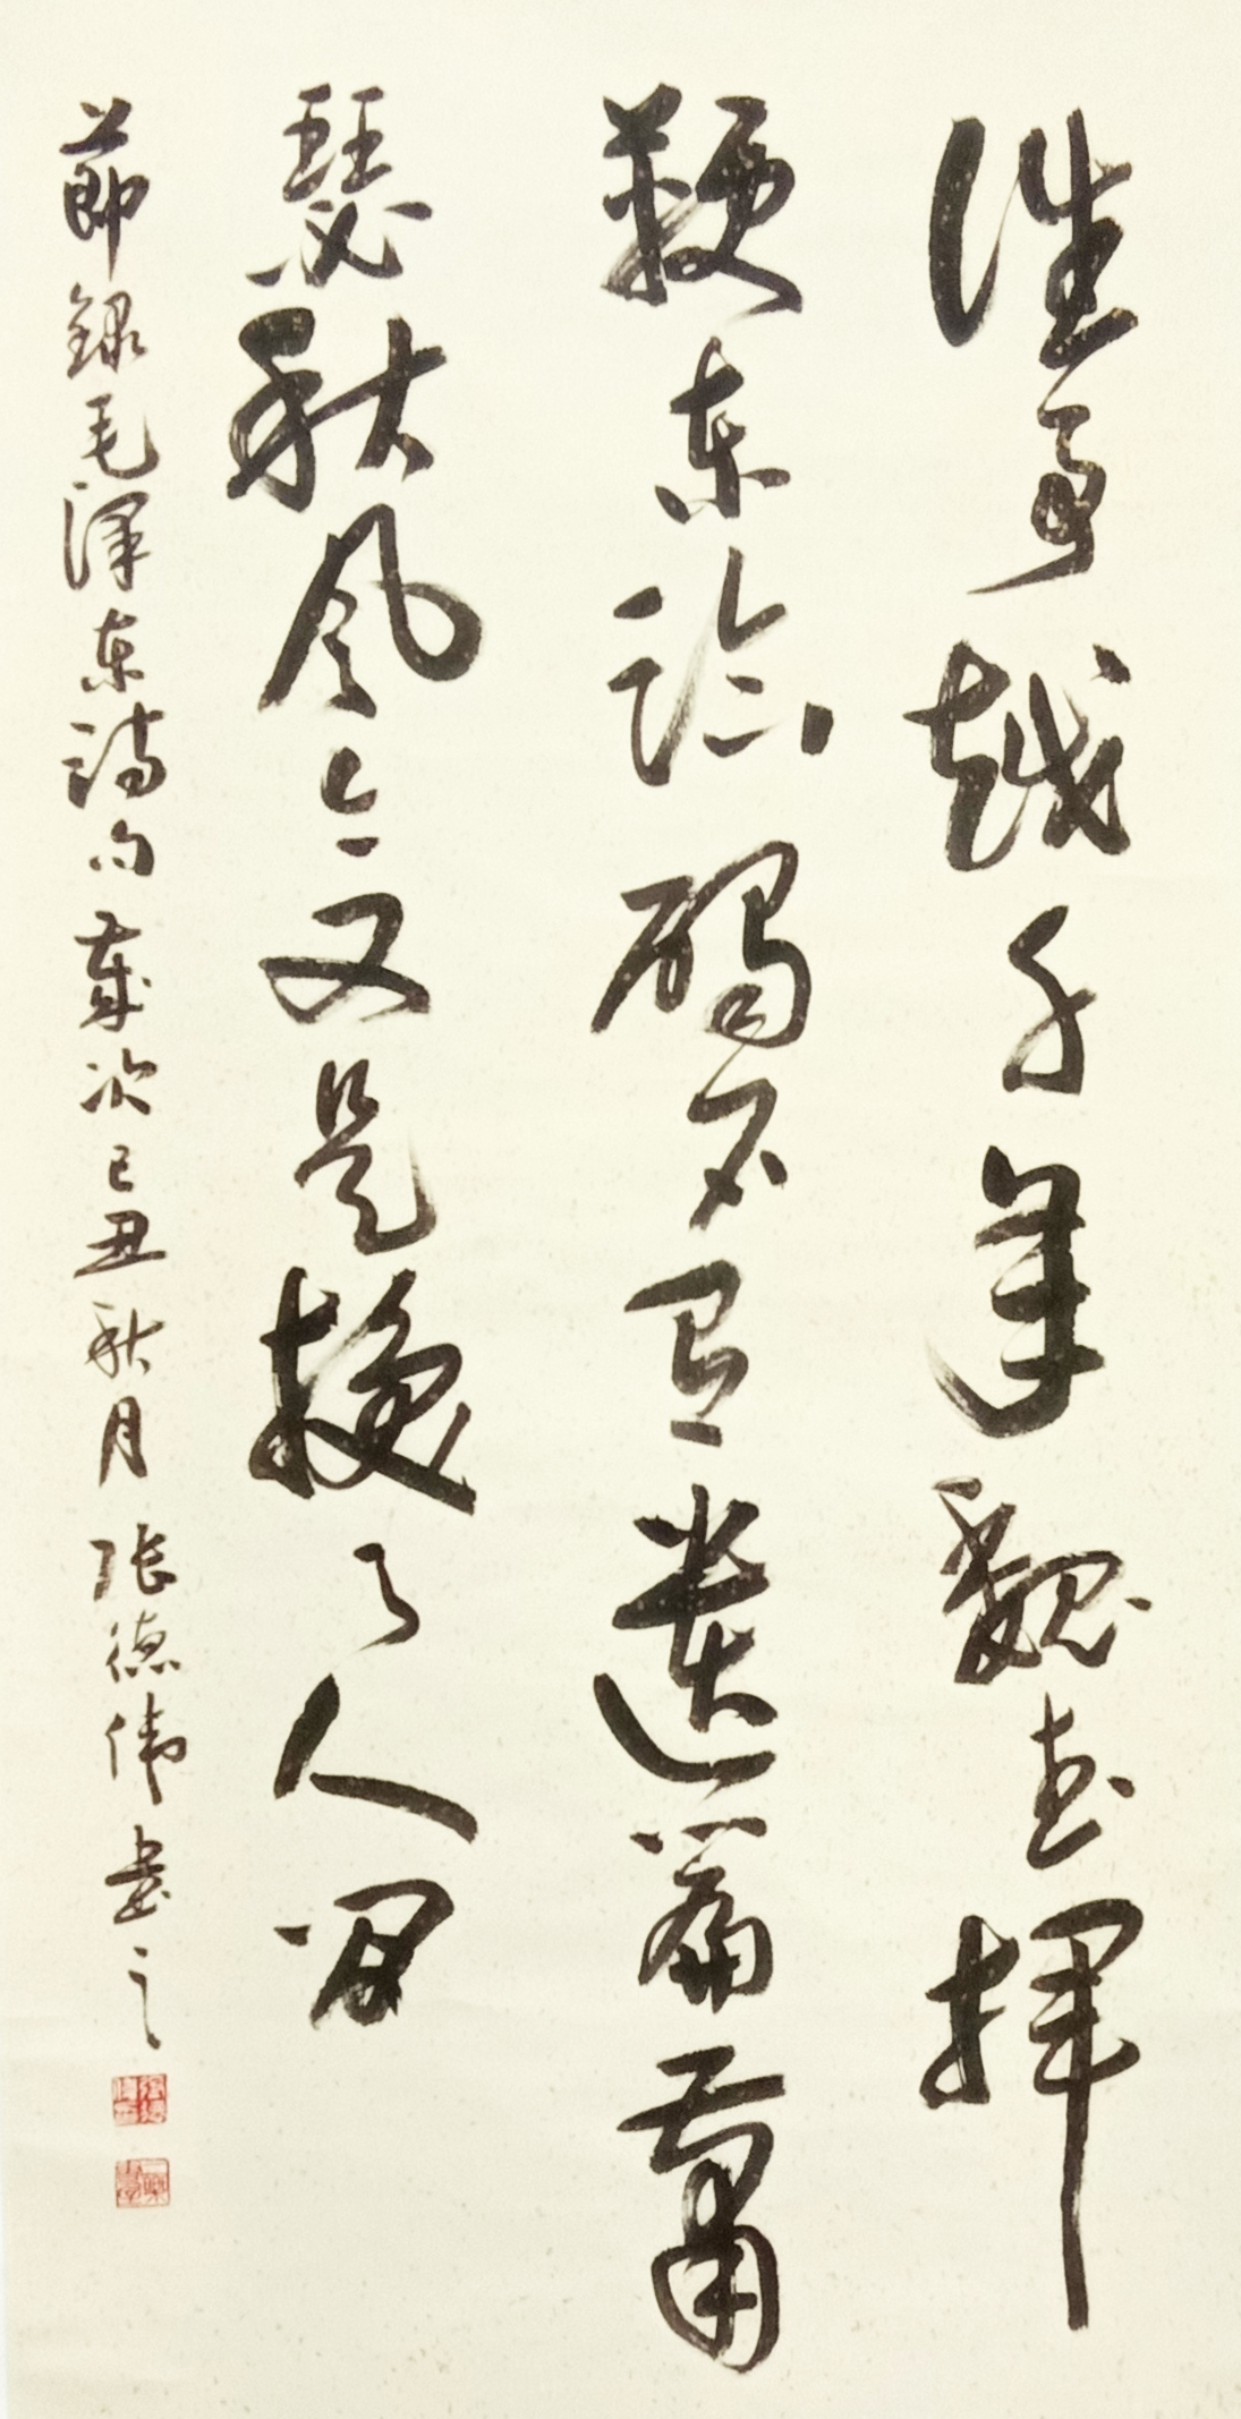 往事越千年魏武揮
鞭東臨碣石有遺篇蕭
瑟秋風今又是換了人間
節錄毛澤東詩句歲次己丑秋月張德偉書之